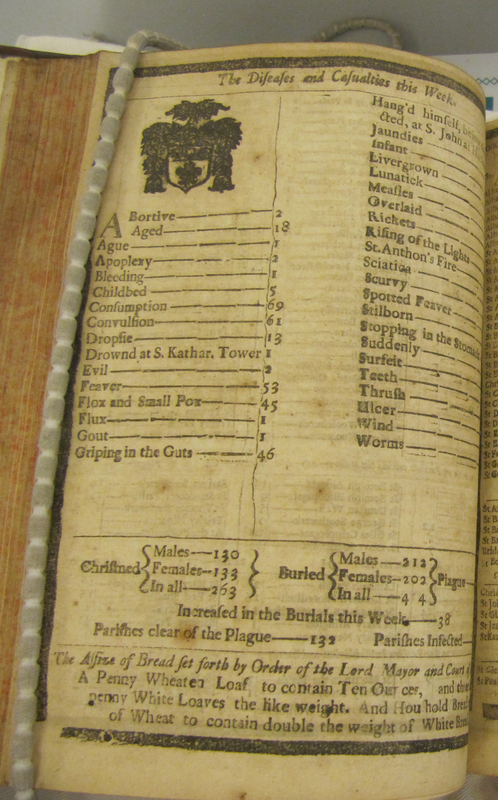 The Diſeaſes and Caſualties this Week.
Abortive 2
Aged 18
Ague 1
Apoplexy 2
Bleeding 1
Childbed 5
Conſumption 69
Convulſion 61
Dropſie 13
Drownd at S. Kathar. Tower 1
Evil 2
Feaver 53
Flox and Small Pox 45
Flux 1
Gout 1
Griping in the Guts 46
Hang'd himſelf,
cted, at S. John at
Jaundies
Infant
Livergrown
Lunatick
Meaſles
Overlaid
Rickets
Riſing of the Lights
St. Anthon's Fire
Sciatica
Scurvy
Spotted Feaver
Stilborn
Stopping in the Stomach
Suddenly
Surfeit
Teeth
Thruſh
Ulcer
Wind
Worms
Chriſtned { Males 130
Females 133
In all 263 }
Buried { Males 212
Females 202
In all 4 4 } Plague
Increaſed in the Burials this Week 38
Pariſhes clear of the Plague 132 Pariſhes Infected
The Aſſize of Bread ſet forth by Order of the Lord Mayor and Court
A Penny Wheaten Loaf to contain Ten Ounces, and
penny White Loaves the like weight. And Houſhold
of Wheat to contain double the weight of White